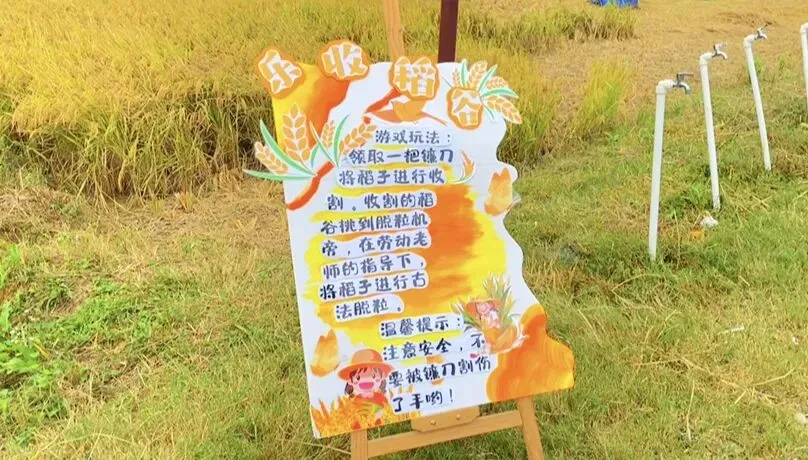 乐收稻谷
游戏玩法：
领取一把镰刀
将稻子进行收
割。收割的稻
谷挑到脱粒机
旁，在劳动老
师的指导下，
将稻子进行古
法脱粒。
温馨提示：
注意安全，不
要被镰刀割伤
了手哟！